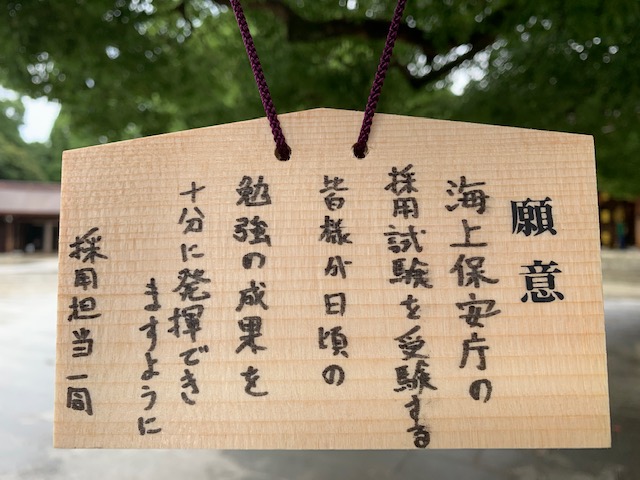 願意
海上保安庁の
採用試験を受験する
皆様が日頃の
勉強の成果を
十分に発揮でき
ますように
採用担当一同